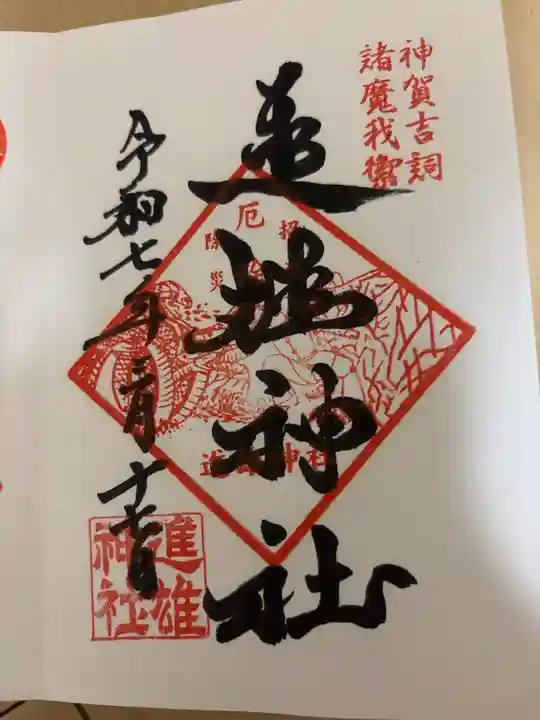 神賀吉詞
諸魔我禦
進雄神社
厄
除
災
招
進雄神社
令和七年三月十七日
進雄
神社